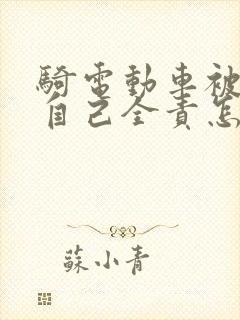 騎電動車被
自己全責怎
蘇小青